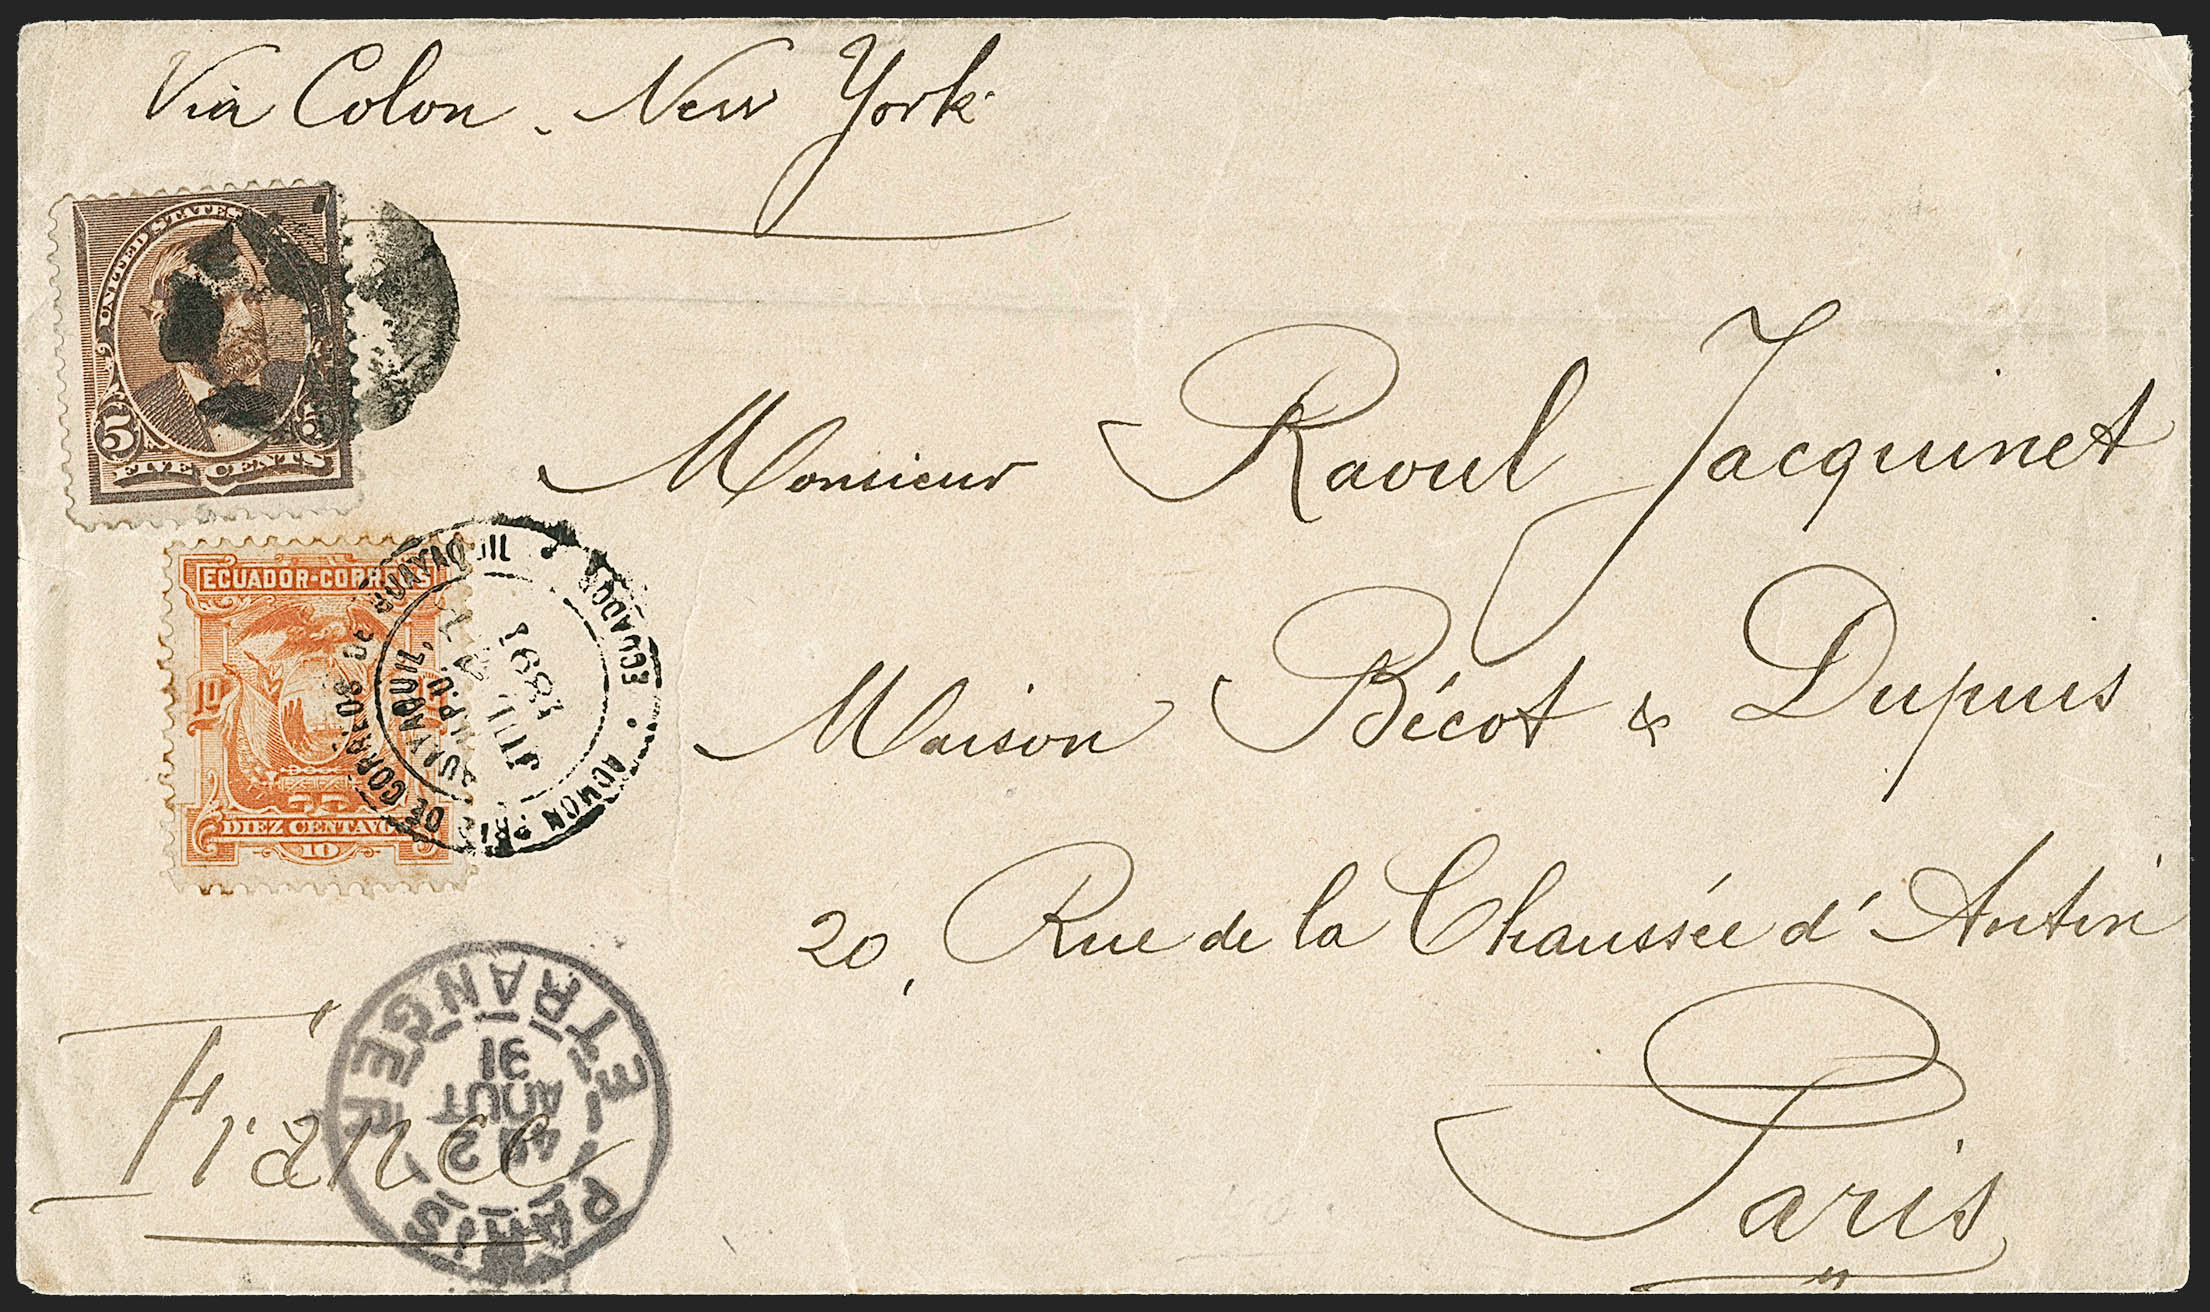 Via Colon - New York
UNITED STATES
5
FIVE CENTS
ECUADOR-CORREOS
10
DIEZ CENTAVOS
10
ADMON PRIL DE CORREOS DE GUAYAQUIL
ECUADOR
GUAYAQUIL
JUL
1891
Monsieur Raoul Jacquinet
Maison Bécot & Dupuis
20, Rue de la Chaussée d'Antin
Paris
France
PARIS
ETRANGER
AOUT